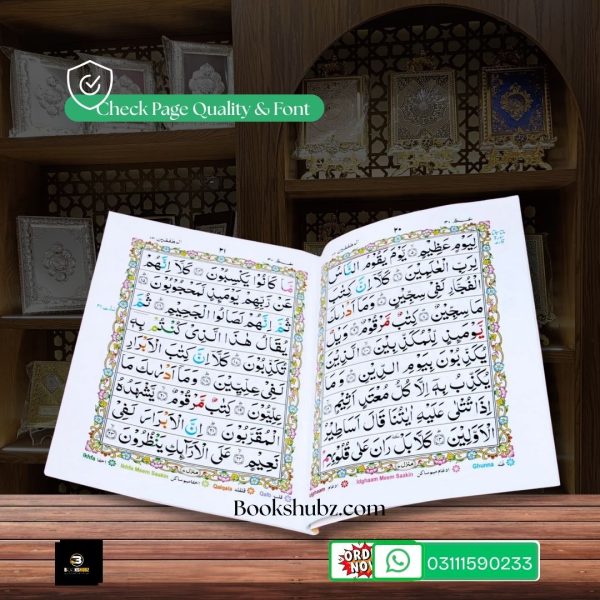 Check Page Quality & Font
عم ٣٠
٣٠
لِيَوْمٍ عَظِيْمٍ ۙ يَّوْمَ يَقُوْمُ النَّاسُ
لِرَبِّ الْعٰلَمِيْنَ ؕ كَلَّاۤ اِنَّ كِتٰبَ
الْفُجَّارِ لَفِيْ سِجِّيْنٍ ؕ وَمَاۤ اَدْرٰىكَ
مَا سِجِّيْنٌ ؕ كِتٰبٌ مَّرْقُوْمٌ ؕ وَيْلٌ
يَّوْمَىِٕذٍ لِّلْمُكَذِّبِيْنَ ۙ الَّذِيْنَ
يُكَذِّبُوْنَ بِيَوْمِ الدِّيْنِ ؕ وَمَا
يُكَذِّبُ بِهٖۤ اِلَّا كُلُّ مُعْتَدٍ اَثِيْمٍ ۙ
اِذَا تُتْلٰى عَلَيْهِ اٰيٰتُنَا قَالَ اَسَاطِيْرُ
الْاَوَّلِيْنَ ؕ كَلَّا بَلْ رَانَ عَلٰى قُلُوْبِهِمْ
Ghunna غنه Idghaam Meem Saakin ادغام ميم ساكن
٣١
مَّا كَانُوْا يَكْسِبُوْنَ ۚ كَلَّاۤ اِنَّهُمْ
عَنْ رَّبِّهِمْ يَوْمَىِٕذٍ لَّمَحْجُوْبُوْنَ ؕ
ثُمَّ اِنَّهُمْ لَصَالُوا الْجَحِيْمِ ؕ ثُمَّ
يُقَالُ هٰذَا الَّذِيْ كُنْتُمْ بِهٖ
تُكَذِّبُوْنَ ؕ كَلَّاۤ اِنَّ كِتٰبَ الْاَبْرَارِ
لَفِيْ عِلِّيِّيْنَ ؕ وَمَاۤ اَدْرٰىكَ مَا
عِلِّيُّوْنَ ؕ كِتٰبٌ مَّرْقُوْمٌ ۙ يَّشْهَدُهُ
الْمُقَرَّبُوْنَ ؕ اِنَّ الْاَبْرَارَ لَفِيْ
نَعِيْمٍ ۙ عَلَى الْاَرَآىِٕكِ يَنْظُرُوْنَ ۙ
Qalqala قلقله Ikhfa Meem Saakin Ikhfa
Bookshubz.com
BOOKSHUBZ
ORD NO
03111590233